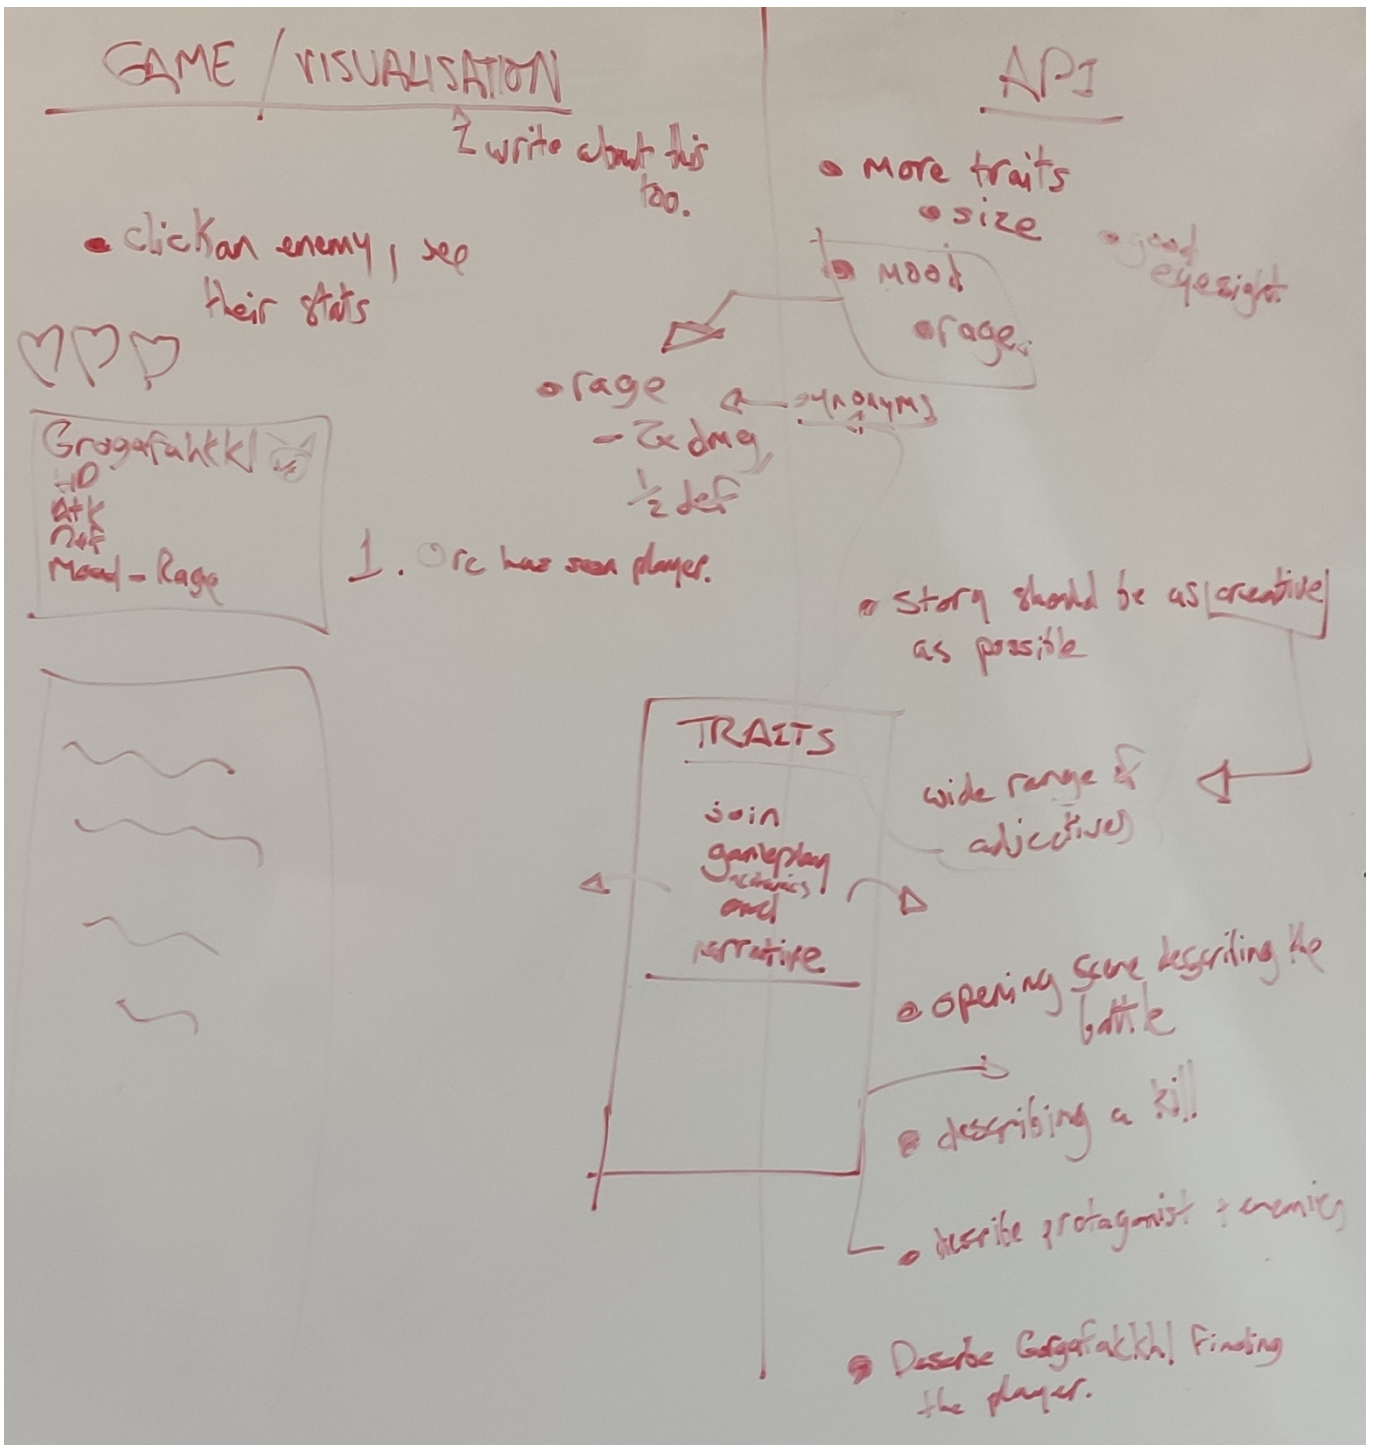 GAME / VISUALISATION
write about this
too.
• click an enemy, see
their stats
Grogafahkkl
HP
Atk
Def
Mood - Rage
1. Orc has seen player.
API
• More traits
• size
• good
eyesight
• Mood
• rage
• rage
- 2x dmg,
1/2 def
synonyms
• Story should be as creative
as possible
wide range of
adjectives
TRAITS
join
gameplay
mechanics
and
narrative
• opening scene describing the
battle
• describing a kill
• describe protagonist + enemies
• Describe Gorgafakkhl finding
the player.